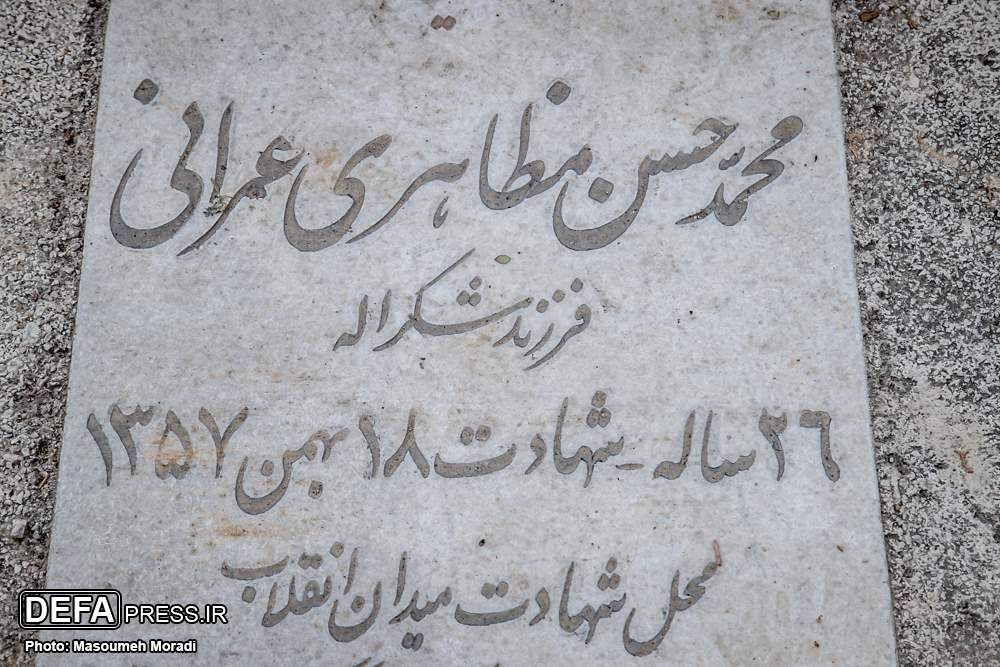 محمّد حسن مظاهری عمرانی
فرزند شکراله
۲۶ ساله - شهادت ۱۸ بهمن ۱۳۵۷
محل شهادت میدان انقلاب
DEFAPRESS.IR
Photo: Masoumeh Moradi